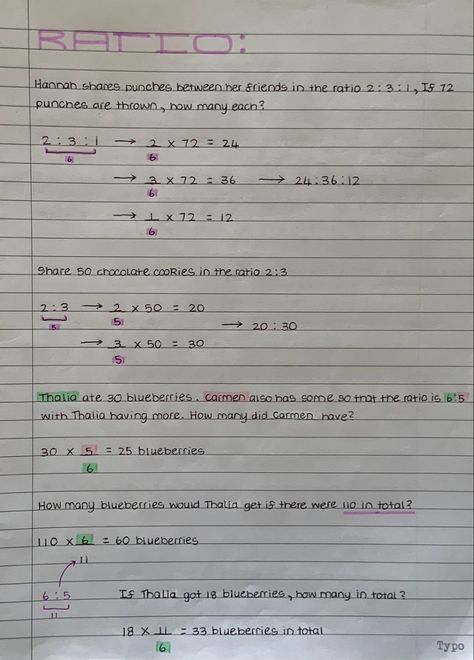 RATIO:
Hannah shares punches between her friends in the ratio 2 : 3 : 1, If 72
punches are thrown, how many each?
2 : 3 : 1 → 2/6 × 72 = 24
6
→ 3/6 × 72 = 36 → 24 : 36 : 12
→ 1/6 × 72 = 12
Share 50 chocolate cookies in the ratio 2:3
2 : 3 → 2/5 × 50 = 20
5
→ 20 : 30
→ 3/5 × 50 = 30
Thalia ate 30 blueberries. Carmen also has some so that the ratio is 6:5
with Thalia having more. How many did Carmen have?
30 × 5/6 = 25 blueberries
How many blueberries would Thalia get if there were 110 in total?
110 × 6/11 = 60 blueberries
6 : 5
11
If Thalia got 18 blueberries, how many in total?
18 × 11/6 = 33 blueberries in total
Typo